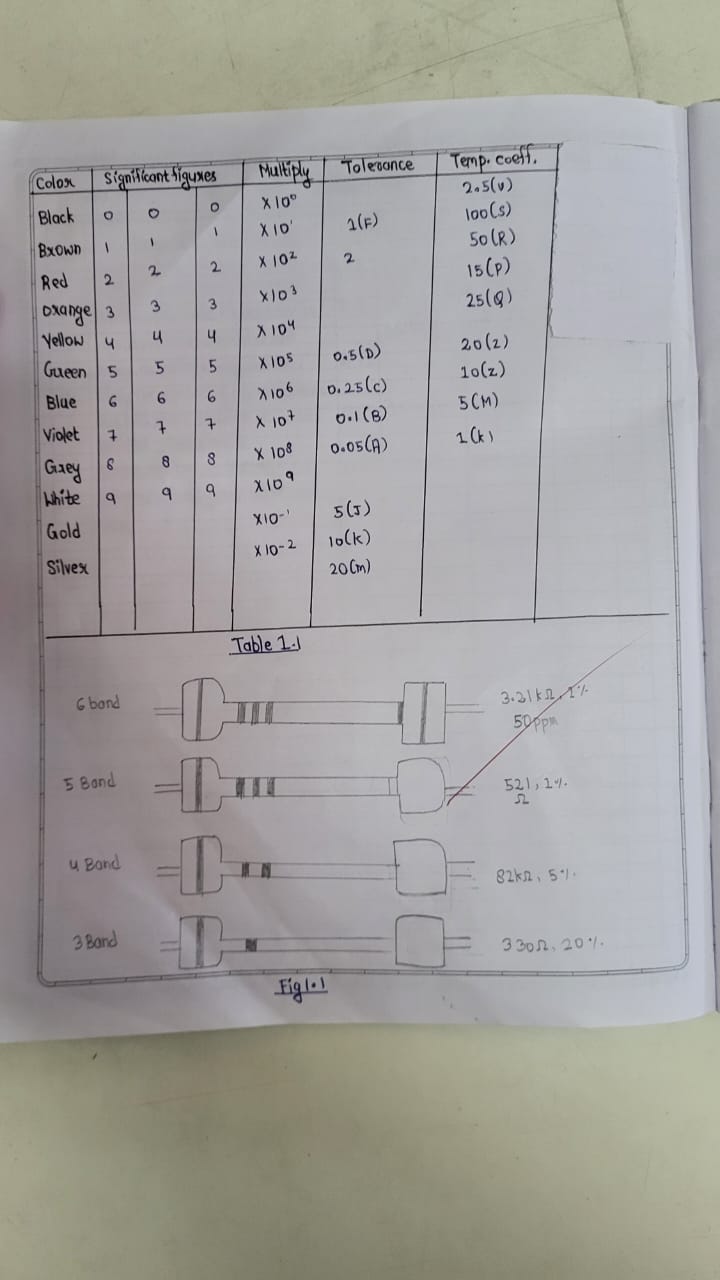 Color Significant figures Multiply Tolerance Temp. coeff.
Black 0 0 0 X10⁰ 2.5(U)
Brown 1 1 1 X10¹ 1(F) 100(S)
Red 2 2 2 X10² 2 50(R)
Orange 3 3 3 X10³ 15(P)
Yellow 4 4 4 X10⁴ 25(Q)
Green 5 5 5 X10⁵ 0.5(D) 20(Z)
Blue 6 6 6 X10⁶ 0.25(C) 10(Z)
Violet 7 7 7 X10⁷ 0.1(B) 5(M)
Grey 8 8 8 X10⁸ 0.05(A) 1(K)
White 9 9 9 X10⁹
Gold X10⁻¹ 5(J)
Silver X10-2 10(K)
20(m)
Table 1.1
6 band 3.21kΩ, 1%
50ppm
5 Band 521, 1%
Ω
4 Band 82kΩ, 5%
3 Band 330Ω, 20%
Fig 1.1